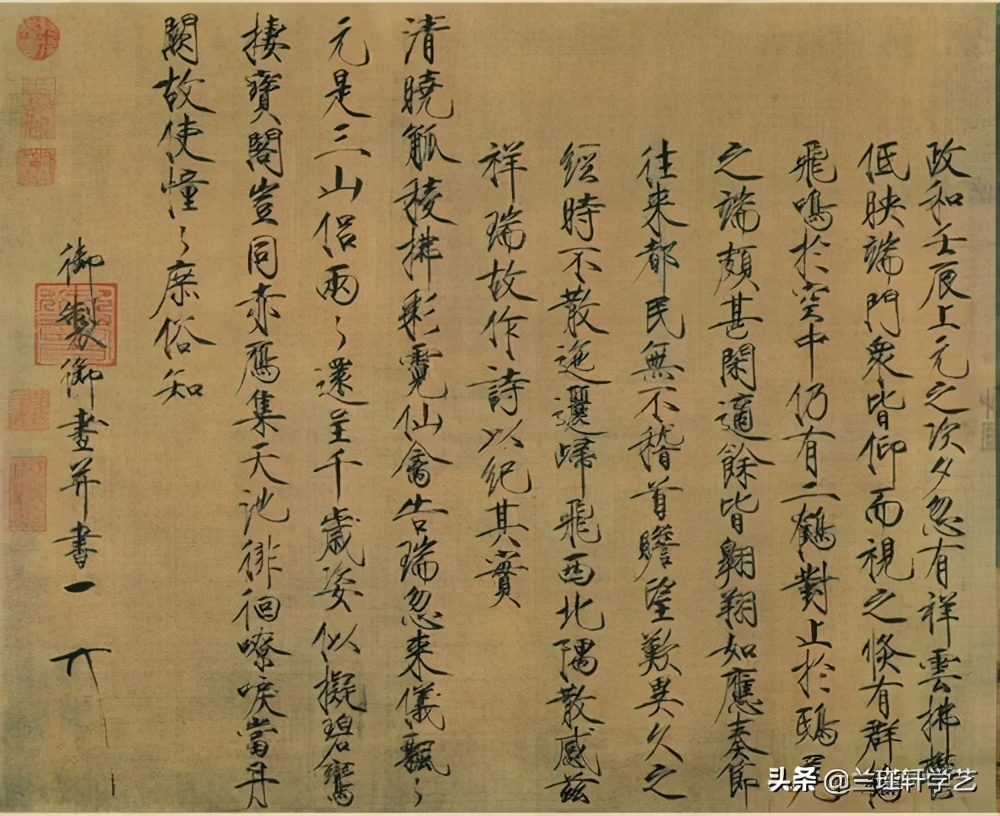 政和壬辰上元之次夕忽有祥雲拂鬱
低映端門衆皆仰而視之倏有群鶴
飛鳴於空中仍有二鶴對止於鴟尾
之端頗甚閑適餘皆翱翔如應奏節
往來都民無不稽首瞻望歎異久之
經時不散迤邐歸飛西北隅散感茲
祥瑞故作詩以紀其實
清曉觚稜拂彩霓仙禽告瑞忽來儀飄〻
元是三山侶兩〻還呈千歲姿似擬碧鸞
棲寶閣豈同赤鴈集天池徘徊嘹唳當丹
闕故使憧〻庶俗知
御製御畫并書
头条 @兰斑轩学艺